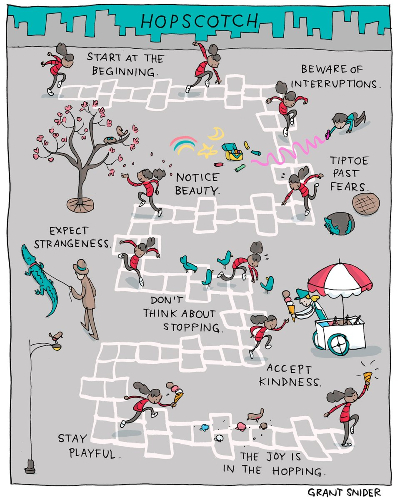 HOPSCOTCH
START AT THE
BEGINNING.
BEWARE OF
INTERRUPTIONS.
NOTICE
BEAUTY.
TIPTOE
PAST
FEARS.
EXPECT
STRANGENESS.
DON'T
THINK ABOUT
STOPPING.
ACCEPT
KINDNESS.
STAY
PLAYFUL.
THE JOY IS
IN THE HOPPING.
GRANT SNIDER